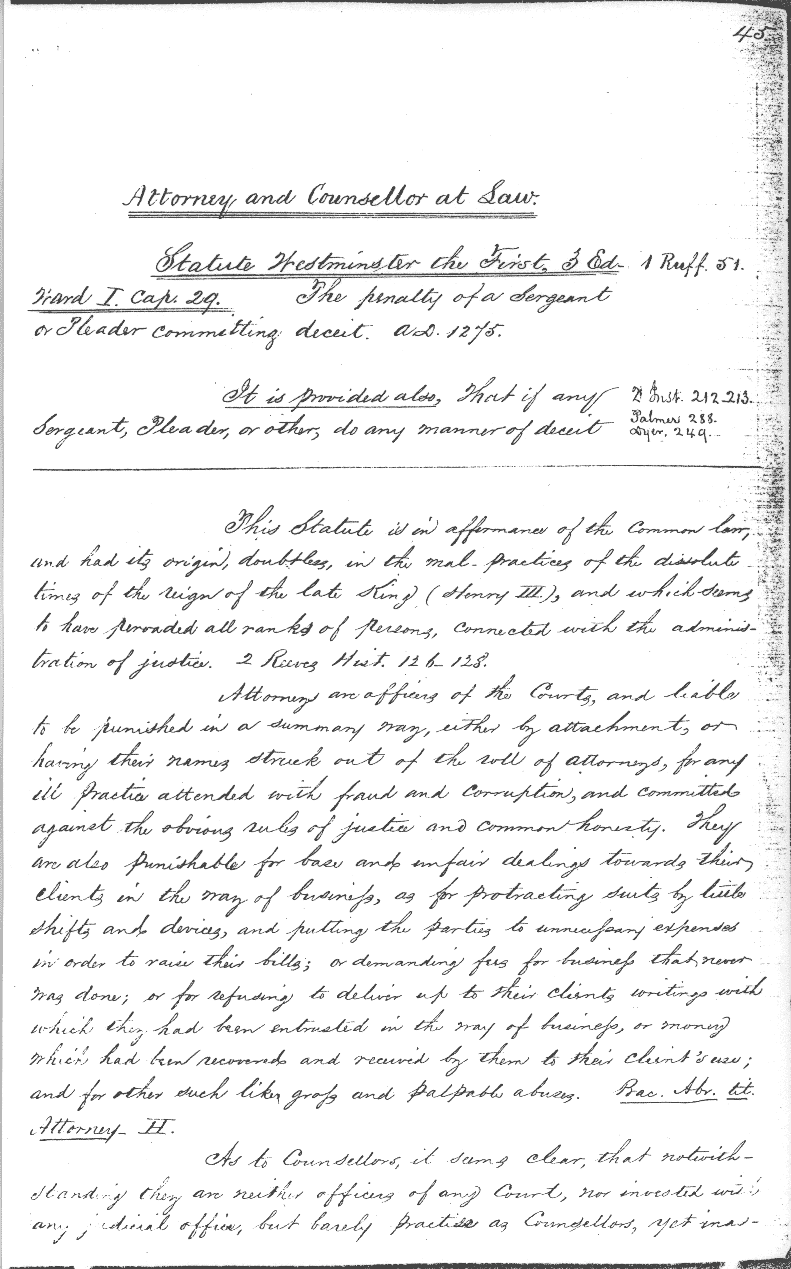 45
Attorney and Counsellor at Law.
Statute Westminster the First, 3 Ed- 1 Ruff. 51.
ward I. Cap. 29. The penalty of a Sergeant
or Pleader committing deceit. A.D. 1275.
It is provided also, That if any 2d Inst. 212-213.
Sergeant, Pleader, or other, do any manner of deceit Palmer 288.
Dyer. 249.
This Statute is in affirmance of the Common law,
and had its origin, doubtless, in the mal-practices of the dissolute
times of the reign of the late King (Henry III.), and which seems
to have pervaded all ranks of persons, connected with the adminis-
tration of justice. 2 Reeves Hist. 126-128.
Attorneys are officers of the Courts, and liable
to be punished in a summary way, either by attachment, or
having their names struck out of the roll of attorneys, for any
ill practice attended with fraud and corruption, and committed
against the obvious rules of justice and common honesty. They
are also punishable for base and unfair dealings towards their
clients in the way of business, as for protracting suits by little
shifts and devices, and putting the parties to unnecessary expenses
in order to raise their bills; or demanding fees for business that never
was done; or for refusing to deliver up to their clients writings with
which they had been entrusted in the way of business, or money
which had been recovered and received by them to their client's use;
and for other such like gross and palpable abuses. Bac. Abr. tit.
Attorney H.
As to Counsellors, it seems clear, that notwith-
standing they are neither officers of any Court, nor invested with
any judicial office, but barely practise as Counsellors, yet inas-